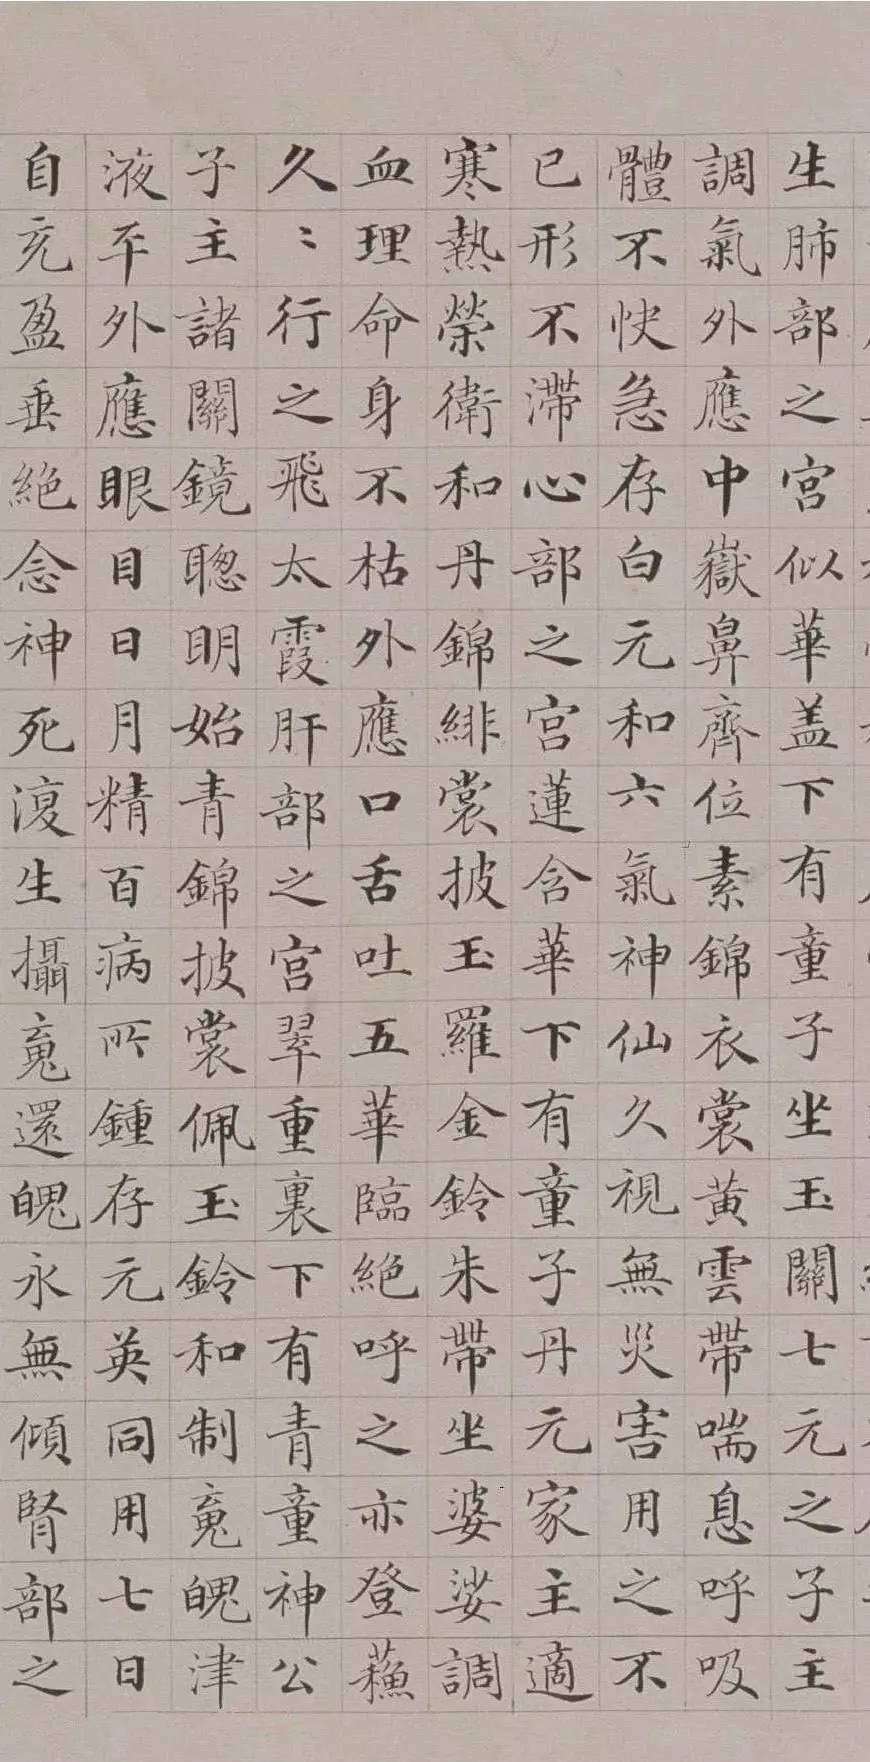 生肺部之宮似華盖下有童子坐玉關七元之子主
調氣外應中嶽鼻齊位素錦衣裳黄雲帶喘息呼吸
體不快急存白元和六氣神仙久視無災害用之不
已形不滯心部之宮蓮含華下有童子丹元家主適
寒熱榮衛和丹錦緋裳披玉羅金鈴朱帶坐婆娑調
血理命身不枯外應口舌吐五華臨絕呼之亦登蘓
久〻行之飛太霞肝部之宮翠重裏下有青童神公
子主諸關鏡聰明始青錦披裳佩玉鈴和制䰟魄津
液平外應眼目日月精百病所鍾存元英同用七日
自充盈垂絕念神死復生攝䰟還魄永無傾腎部之